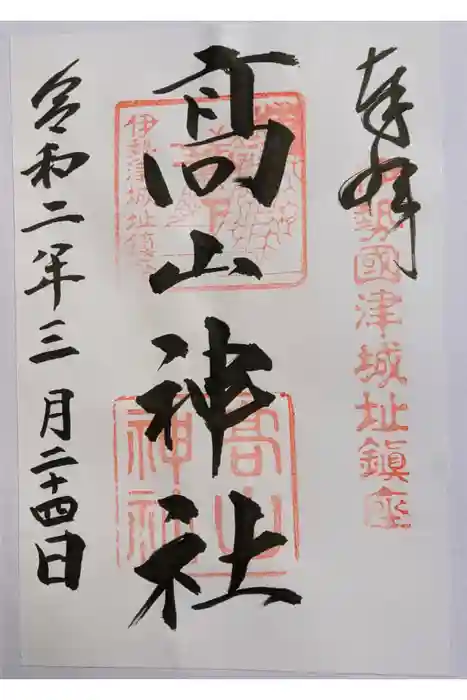 奉拝
勢國津城址鎮座
高山神社
伊勢津城址鎮
高山
神社
令和二年三月二十四日